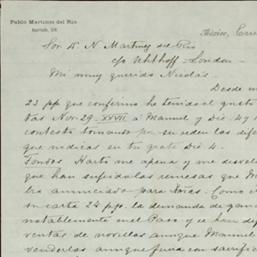 Pablo Martinez del Rio
Sor. Dn N. Martinez del Rio
c/o Uhthoff - London
Mi muy querido Nicolás.
Desde m
23 ppo que confirmo he tenido el gusto
tas Nov. 29. XXVII a Manuel y Dic. 4 y
contesto tomando por su orden las dife
que indicas en tu grata Dic 4.
Fondos Harto me apena y me desvela
que han sufrido las remesas que M
bia anunciado para todos. Como
su carta 24 ppo. la demanda de gana
notablemente en el Paso y se han de
ventas de novillos aunque Manuel
venderlos aunque fuera con sacrific